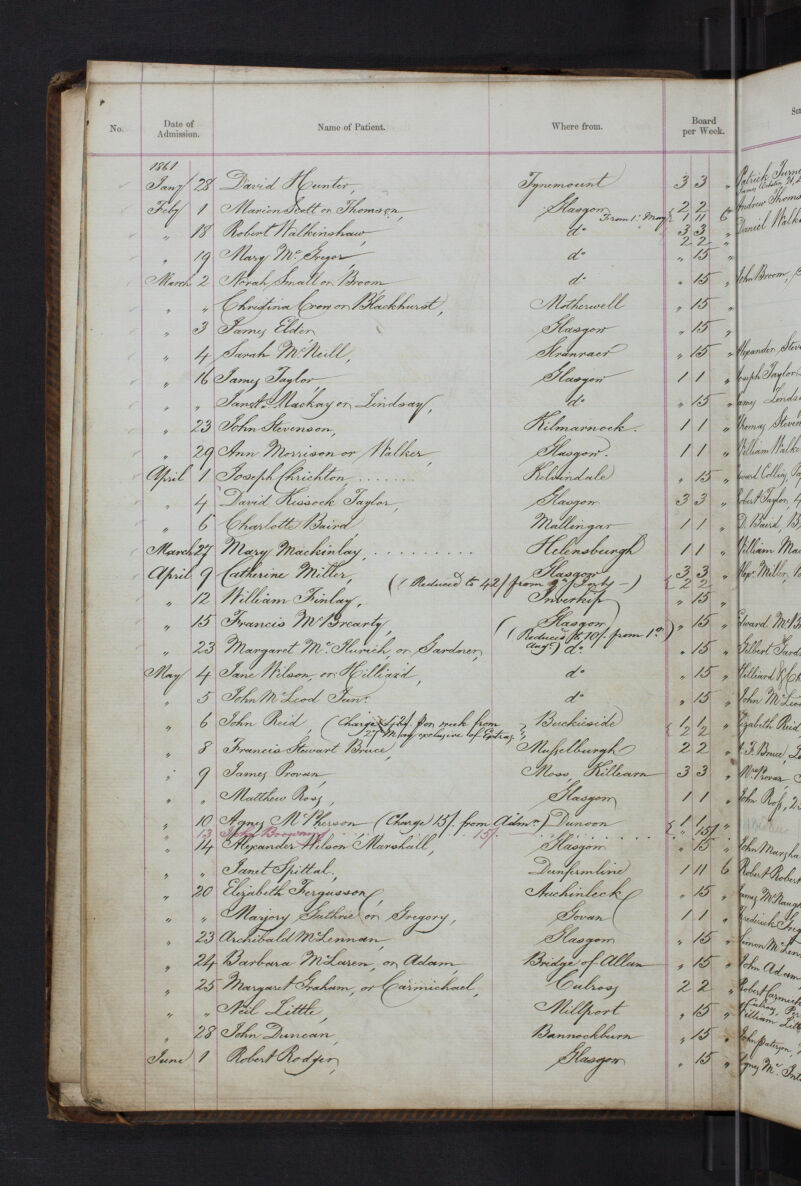 No. Date of Admission. Name of Patient. Where from. Board per Week.
1861
Jany 28 David Hunter, Tynemount 3 3 „ Patrick Turne
Feby 1 Marion Scott or Thomson, Glasgow From 1st May { 2 2 „ Andrew Thoms
1 11 6
„ 18 Robert Walkinshaw, do 3 3 „ Daniel Walk
2 2 „
„ 19 Mary McGregor, do „ 15 „
March 2 Norah Small or Broom do „ 15 „ John Broom,
„ „ Christina Crow or Blackhurst, Motherwell „ 15 „
„ 3 James Elder, Glasgow „ 15 „
„ 4 Sarah McNeill, Stranraer „ 15 „ Alexander Stev
„ 16 James Taylor Glasgow 1 1 „ Joseph Taylor
„ „ Janet Mackay or Lindsay, do „ 15 „ James Linds
„ 23 John Stevenson, Kilmarnock. 1 1 „ Thomas Steven
„ 29 Ann Morrison or Walker, Glasgow. 1 1 „ William Walke
April 1 Joseph Chrichton, . . . . . . . Kelvindale „ 15 „ Edward Collins,
„ 4 David Kissock Taylor, Glasgow 3 3 „ Robert Taylor, 4
„ 6 Charlotte Baird Mullingar 1 1 „ D. Baird, B
March 27 Mary Mackinlay, . . . . . . . . . Helensburgh 1 1 „ William Mac
April 9 Catherine Miller, Glasgow { 3 3 „ Alexr Miller,
(Reduced to 42/ from 2d Septr —) 2 2
„ 12 William Finlay, Inverkip „ 15 „
„ 15 Francis McBrearty, (Glasgow) „ 15 „ Edward McB
(Reduced to 10/. from 1st Augt)
„ 23 Margaret McHurich, or Gardner, do „ 15 „ Gilbert Gard
May 4 Jane Wilson, or Hilliard, do „ 15 „ Hilliard
„ 5 John McLeod Junr do „ 15 „ John McLeod
„ 6 John Reid, (Charge £2/2/. per week from Buchieside { 1 1 „ Elizabeth Reid
27 May exclusive of Extras) 2 2 „
„ 8 Francis Stewart Bruce, Musselburgh 2 2 „ F. Bruce,
„ 9 James Provan, Moss, Killearn 3 3 „ Mrs Provan,
„ „ Matthew Ross, Glasgow 1 1 „ John Ross, 2
„ 10 Agnes McPherson (Charge 15/. from Admn) Dunoon { 1 1 „
„ 13 John Browning . . . . . . . . 15/. . . . . . . . . . „ 15/.
„ 14 Alexander Wilson Marshall, Glasgow „ 15 „ John Marsha
„ „ Janet Spittal, Dunfermline 1 11 6 Robert Robert
„ 20 Elizabeth Fergusson, Auchinleck „ 15 „ James McNaug
„ „ Marjory Guthrie or Gregory, Govan 1 1 „ Frederick Greg
„ 23 Archibald McLennan, Glasgow „ 15 „ Simon McLen
„ 24 Barbara McLaren, or Adam, Bridge of Allan „ 15 „ John Adam
„ 25 Margaret Graham, or Carmichael, Culross 2 2 „ Robert Carmich
Culross, Per
„ „ Neil Little, Millport „ 15 „ William Litt
„ 28 John Duncan, Bannockburn „ 15 „ John Paterson,
June 1 Robert Rodger, Glasgow „ 15 „ Agnes Mc